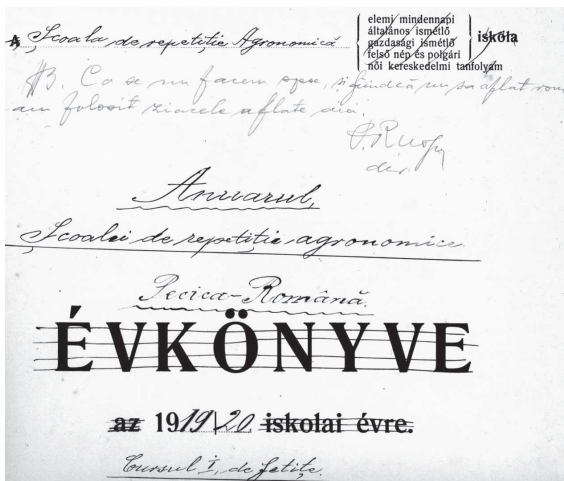 A Școala de repetiție Agronomică
elemi mindennapi
általános ismétlő
gazdasági ismétlő
felső nép és polgári
női kereskedelmi tanfolyam
iskola
NB. Ca se nu facem spese, și fiindcă nu sa aflat rom
am folosit ziarele aflate aici.
dir.
Anuarul,
Școalei de repetiție agronomice
Pecica-Română.
ÉVKÖNYVE
az 1919/20 iskolai évre.
Cursul I, de fetițe.